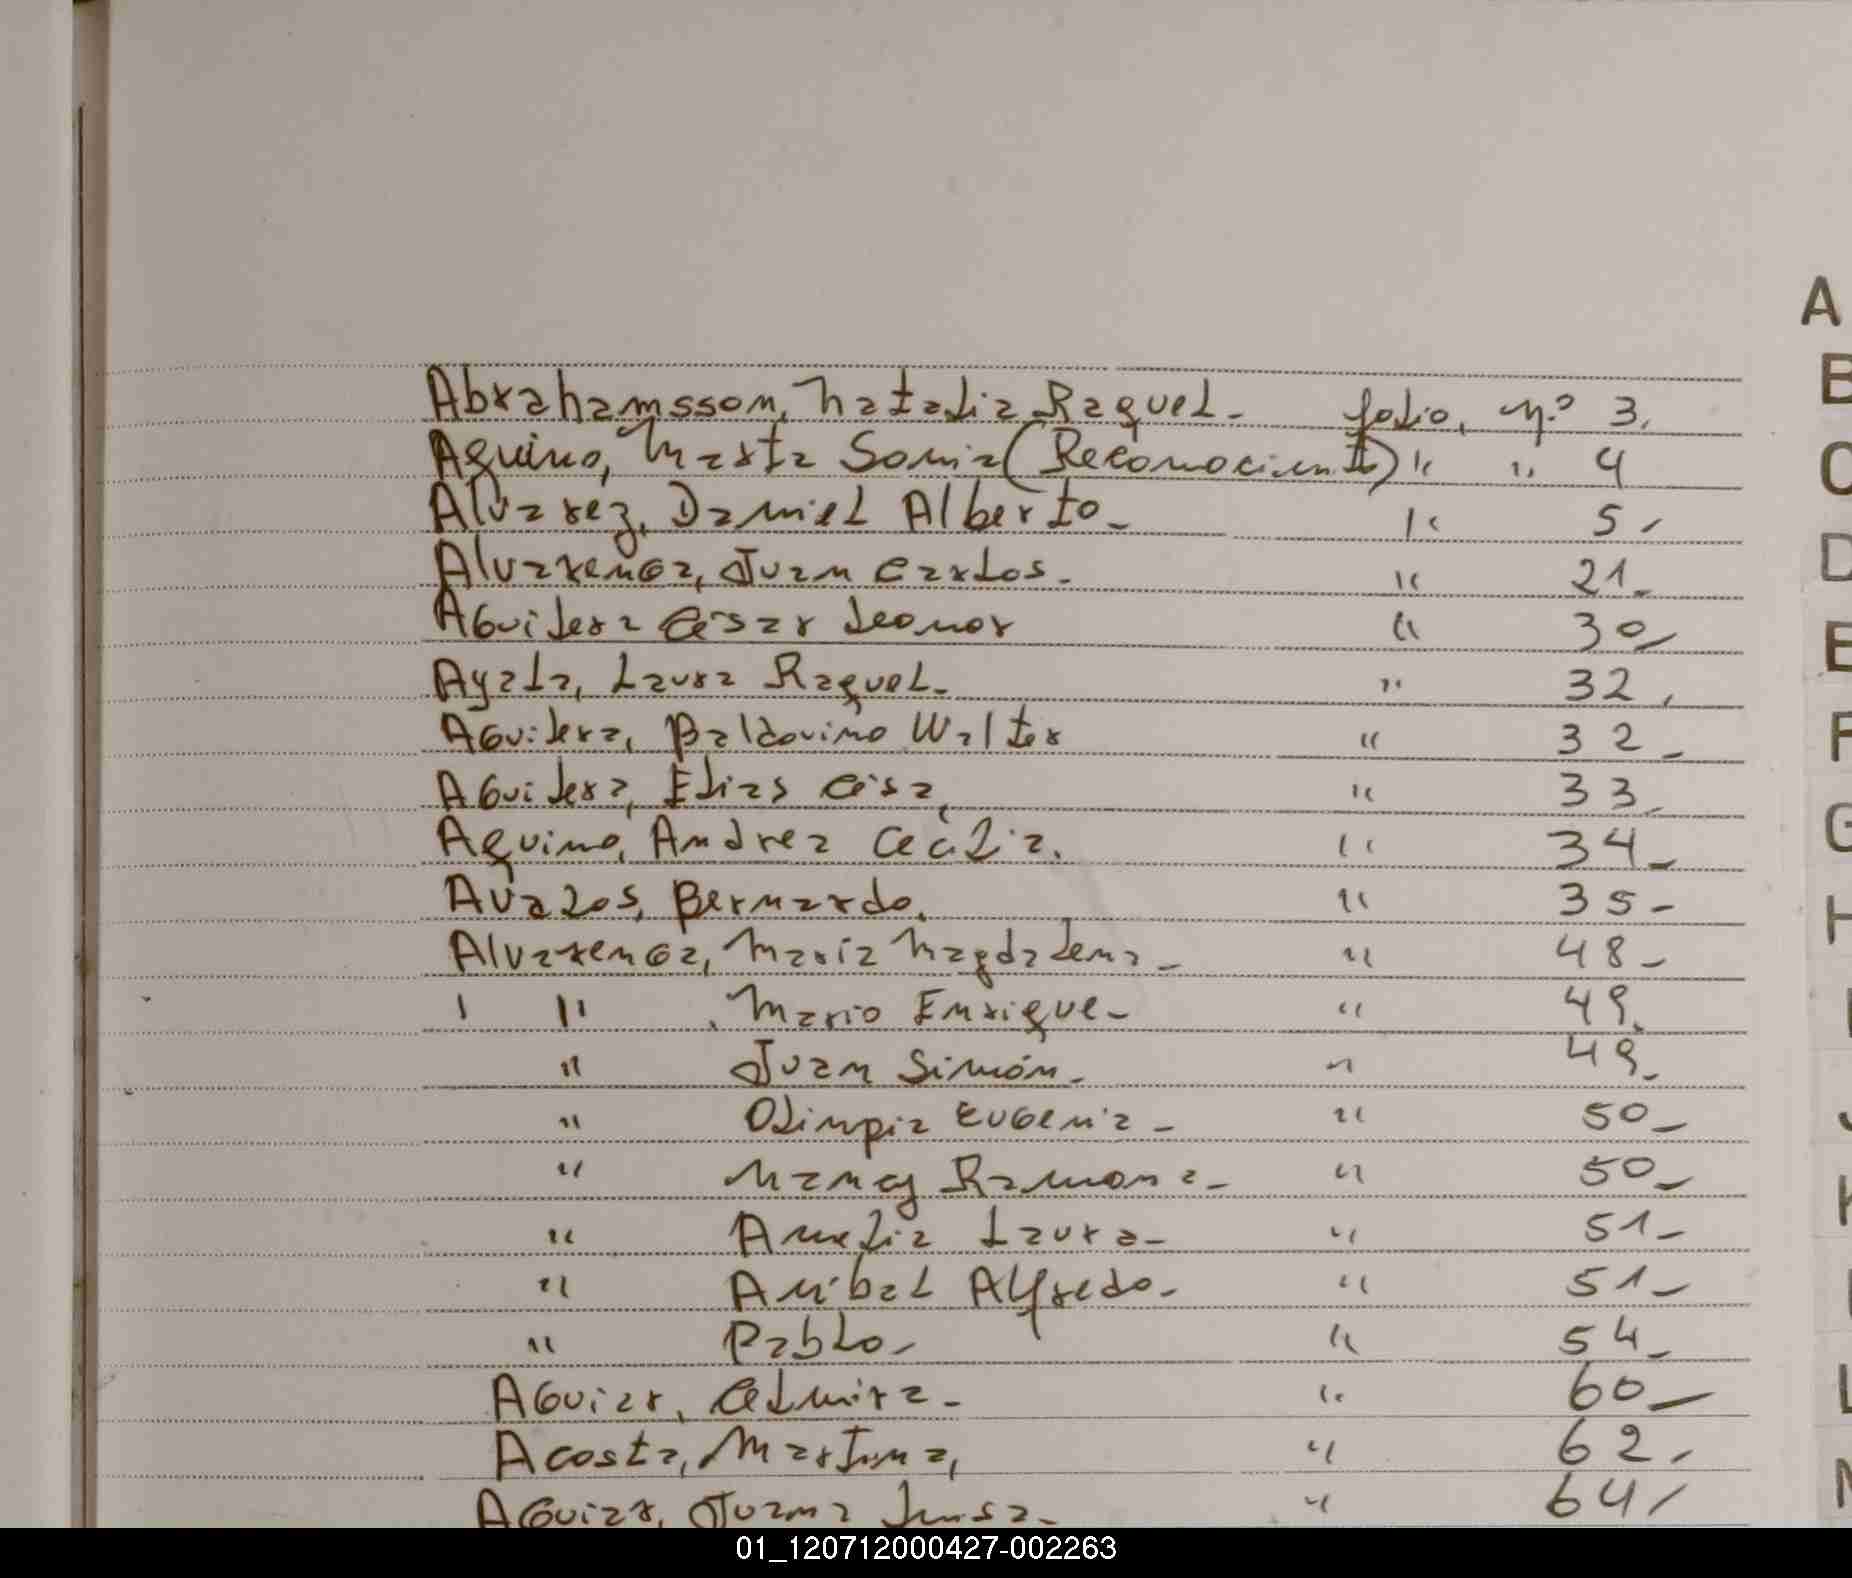 Abrahamsson, Natalia Raquel- folio, n.º 3.
Aquino, Marta Sonia (Reconocimient) " " 4
Alvarez, Daniel Alberto- " 5-
Alvarenga, Juan Carlos- " 21-
Aguilera Cesar Leonor " 30-
Ayala, Laura Raquel- " 32,
Aguilera, Baldovino Walter " 32-
Aguilera, Elias " 33-
Aquino, Andrea Cecilia. " 34-
Avalos, Bernardo. " 35-
Alvarenga, Maria Magdalena- " 48-
" . Mario Enrique- " 49.
" Juan Simón- " 49-
" Olimpia Eugenia- " 50-
" Nancy Ramona- " 50-
" Amelia Laura- " 51-
" Anibal Alfredo- " 51-
" Pablo- " 54-
Aguiar, Celmira- " 60-
Acosta, Martina, " 62-
Aguiar, Juana " 64/
A
B
C
D
E
F
G
H
J
K
L
01_120712000427-002263